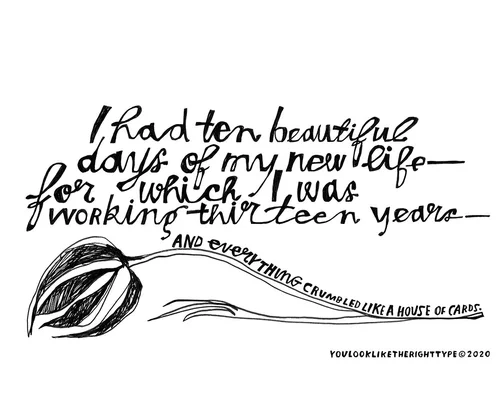 I had ten beautiful
days of my new life—
for which I was
working thirteen years—
AND everYTHING CRUMBLED LIKE A HOUSE OF CARDS.
YOULOOKLIKETHERIGHTTYPE©2020